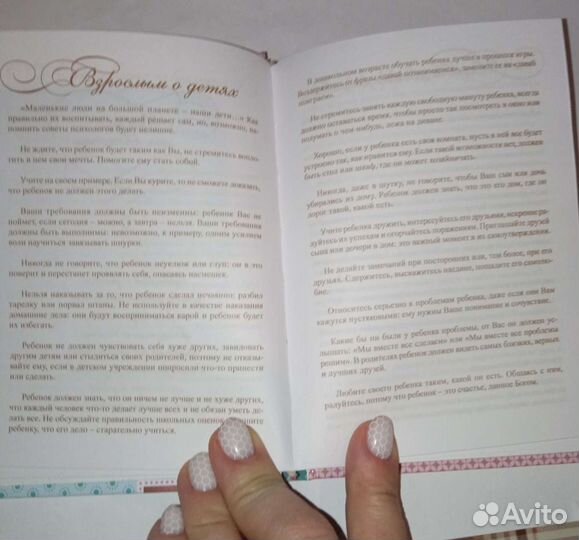 Взрослым о детях
«Маленькие люди на большой планете – наши дети...» Как
правильно их воспитывать, каждый решает сам, но, возможно, вспо-
мнить советы психологов будет нелишне.
Не ждите, что ребенок будет таким как Вы, не стремитесь вопло-
тить в нем свои мечты. Помогите ему стать собой.
Учите на своем примере. Если Вы курите, то не сможете доказать,
что ребенок не должен этого делать.
Ваши требования должны быть неизменны: ребенок Вас не
поймет, если сегодня – можно, а завтра – нельзя. Ваши требования
должны быть выполнимы: невозможно, к примеру, одним усилием
воли научиться завязывать шнурки.
Никогда не говорите, что ребенок неуклюж или глуп: он в это
поверит и перестанет проявлять себя, опасаясь насмешек.
Нельзя наказывать за то, что ребенок сделал нечаянно: разбил
тарелку или порвал штаны. Не используйте в качестве наказания
домашние дела: они будут восприниматься карой и ребенок будет
их избегать.
Ребенок не должен чувствовать себя хуже других, завидовать
другим детям или стыдиться своих родителей, поэтому не отказы-
вайте ему, если в детском учреждении попросили что-то принести
или сделать.
Ребенок должен знать, что он ничем не лучше и не хуже других,
что каждый человек что-то делает лучше всех и не обязан уметь де-
лать все. Не обсуждайте правильность школьных оценок,
ребенку, что его дело – старательно учиться.
В дошкольном возрасте обучать ребенка лучше в процессе игры.
Воздержитесь от фразы «давай позанимаемся», замените ее на «давай
поиграем».
Не стремитесь занять каждую свободную минуту ребенка, всегда
должно оставаться время, чтобы просто так посмотреть в окно или
подумать о чем-нибудь, лежа на диване.
Хорошо, если у ребенка есть своя комната, пусть в ней все будет
устроено так, как нравится ему. Если такой возможности нет, должен
быть стол или шкаф, где он может хозяйничать.
Никогда, даже в шутку, не говорите, чтобы Ваш сын или дочь
убирались из дому. Ребенок должен знать, что это его дом, где он
дорог такой, какой есть.
Учите ребенка дружить, интересуйтесь его друзьями, искренне ра-
дуйтесь их успехам и огорчайтесь поражениям. Приглашайте друзей
сына или дочери в дом: это важный момент в их самоутверждении.
Не делайте замечаний при посторонних или, тем более, при его
друзьях. Сдержитесь, выскажитесь наедине, пощадите его самолю-
бие.
Относитесь серьезно к проблемам ребенка, даже если они Вам
кажутся пустяковыми: ему нужны Ваше понимание и сочувствие.
Какие бы ни были у ребенка проблемы, от Вас он должен ус-
лышать: «Мы вместе все сделаем» или «Мы вместе все проблемы
решим». В родителях ребенок должен видеть самых близких, верных
и лучших друзей.
Любите своего ребенка таким, какой он есть. Общаясь с ним,
радуйтесь, потому что ребенок – это счастье, данное Богом.
Avito